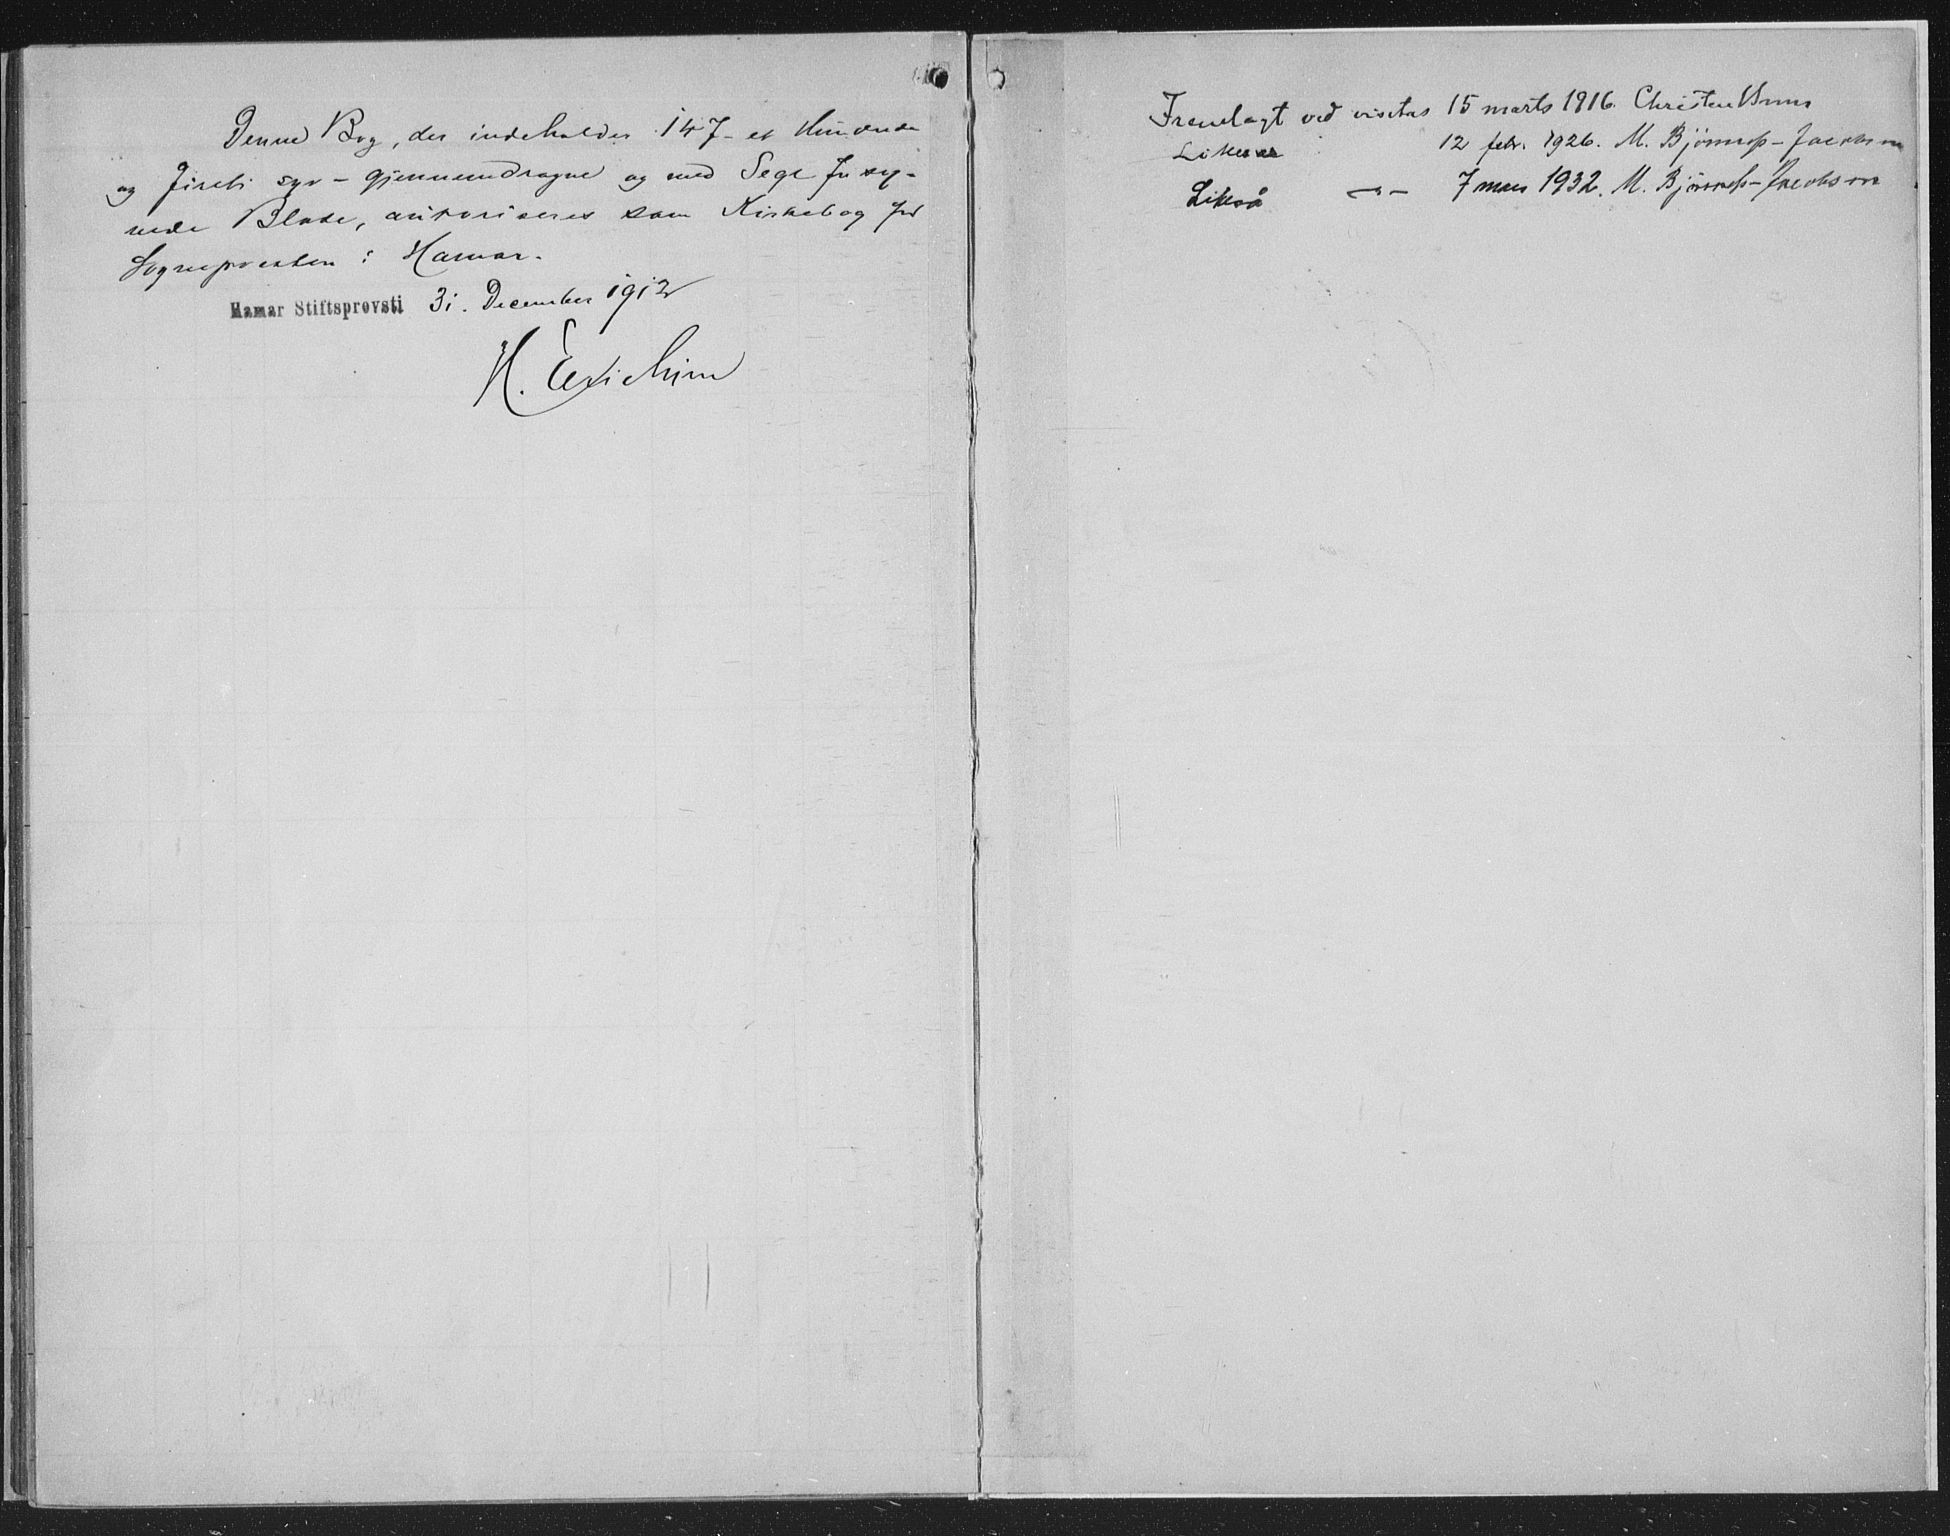 Denne Bog, der indeholder 147 - et Hundrede
og Firti syv - gjennemdragne og med Segl forsy-
nede Blade, autoriseres som Kirkebog for
Sognepresten i Hamar.
Hamar Stiftsprovsti 31. December 1912
H.
Fremlagt ved visitas 15 marts 1916. Christen Brun
Likesaa 12 febr. 1926. M. Bjønnes-Jacobsen
Likeså -"- 7 mars 1932. M. Bjønnes-Jacobsen